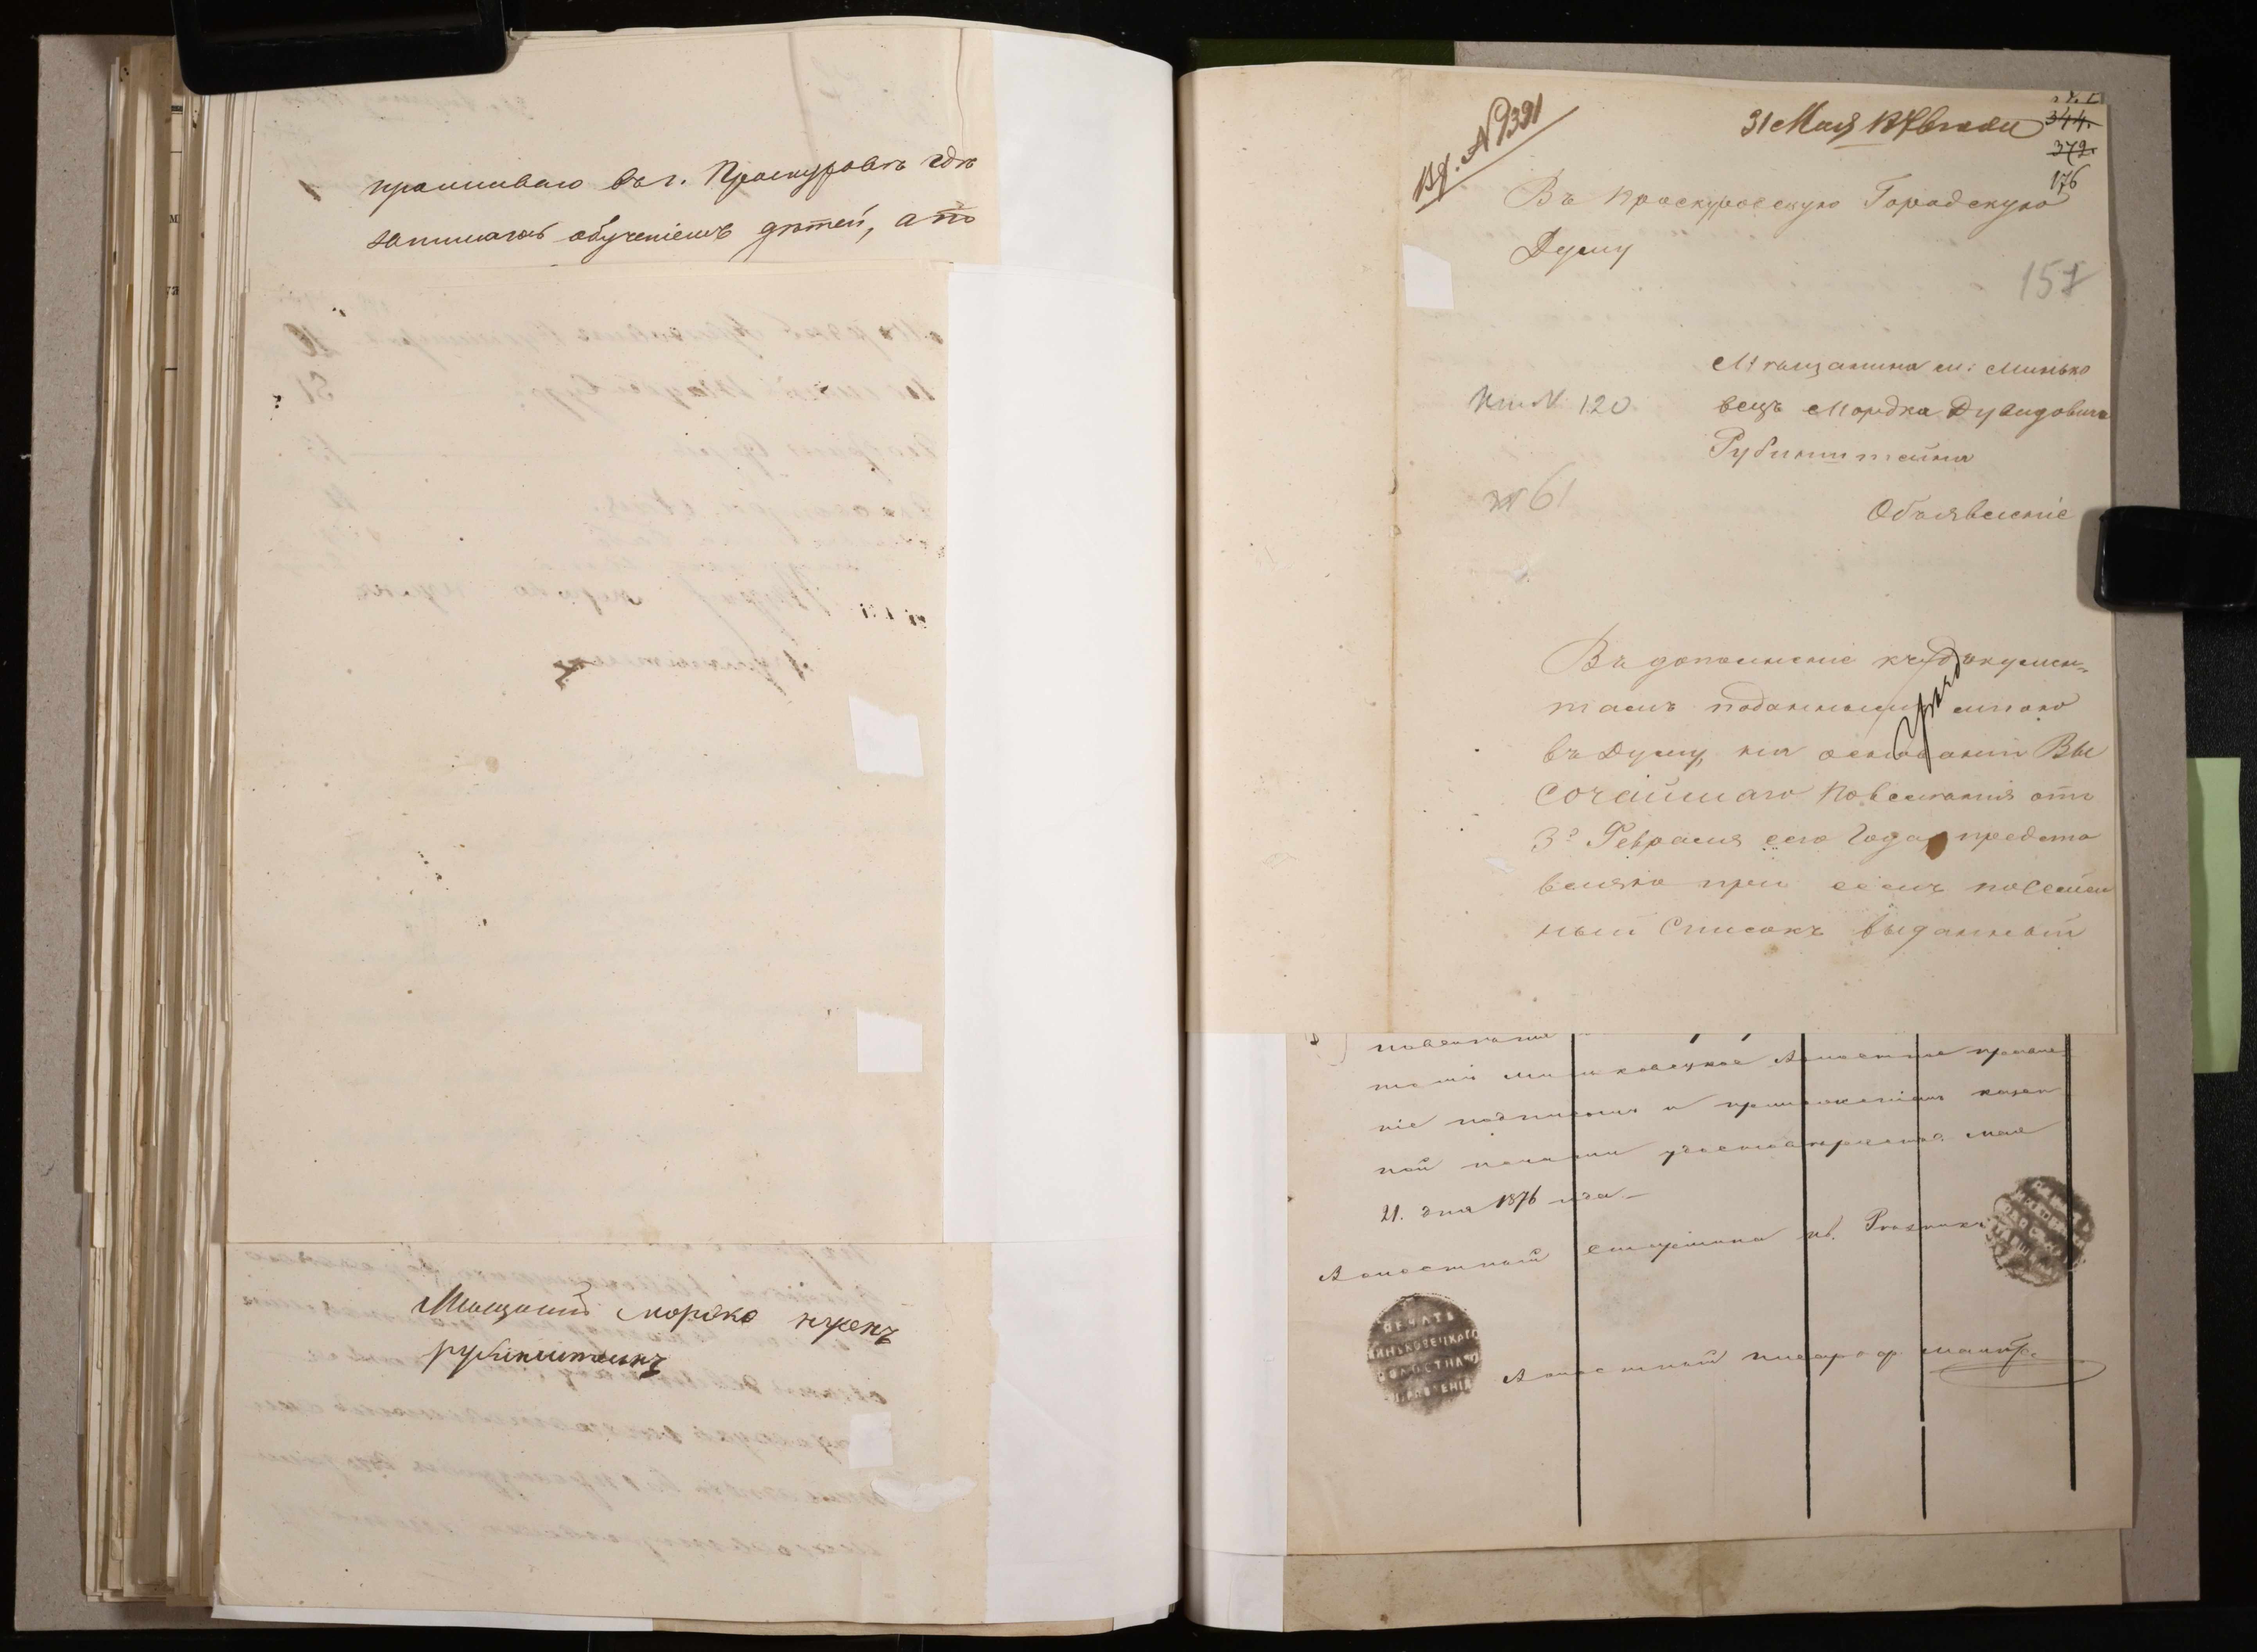 проживаю въ г. Проскуровѣ гдѣ
занимаюсь обученіемъ дѣтей, а то
Мещанинъ мордко
рубинштейнъ
Вх. № 9391
31 Мая
344.
372.
176
Въ Проскуровскую Городскую
Думу
157
Мѣщанина м: Минько
вецъ Мордка Дувидовича
Рубинштейна
К № 120
№ 61
Объявленіе
Въ дополненіе къ докумен-
тамъ поданнымъ мною
въ Думу, на основаніи Вы
сочайшаго повеленія отъ
3го Февраля сего Года, предста
вляю при семъ посемей
ный Списокъ выданный
Миньковецкое Волостное правле
ніе подписью и приложеніемъ казен
ной печати удостоверяетъ. Мая
21. дня 1876 года
Волостной старшина
ПЕЧАТЬ
МИНЬКОВЕЦКАГО
ВОЛОСТНАГО
ПРАВЛЕНІЯ
Волостный писарь